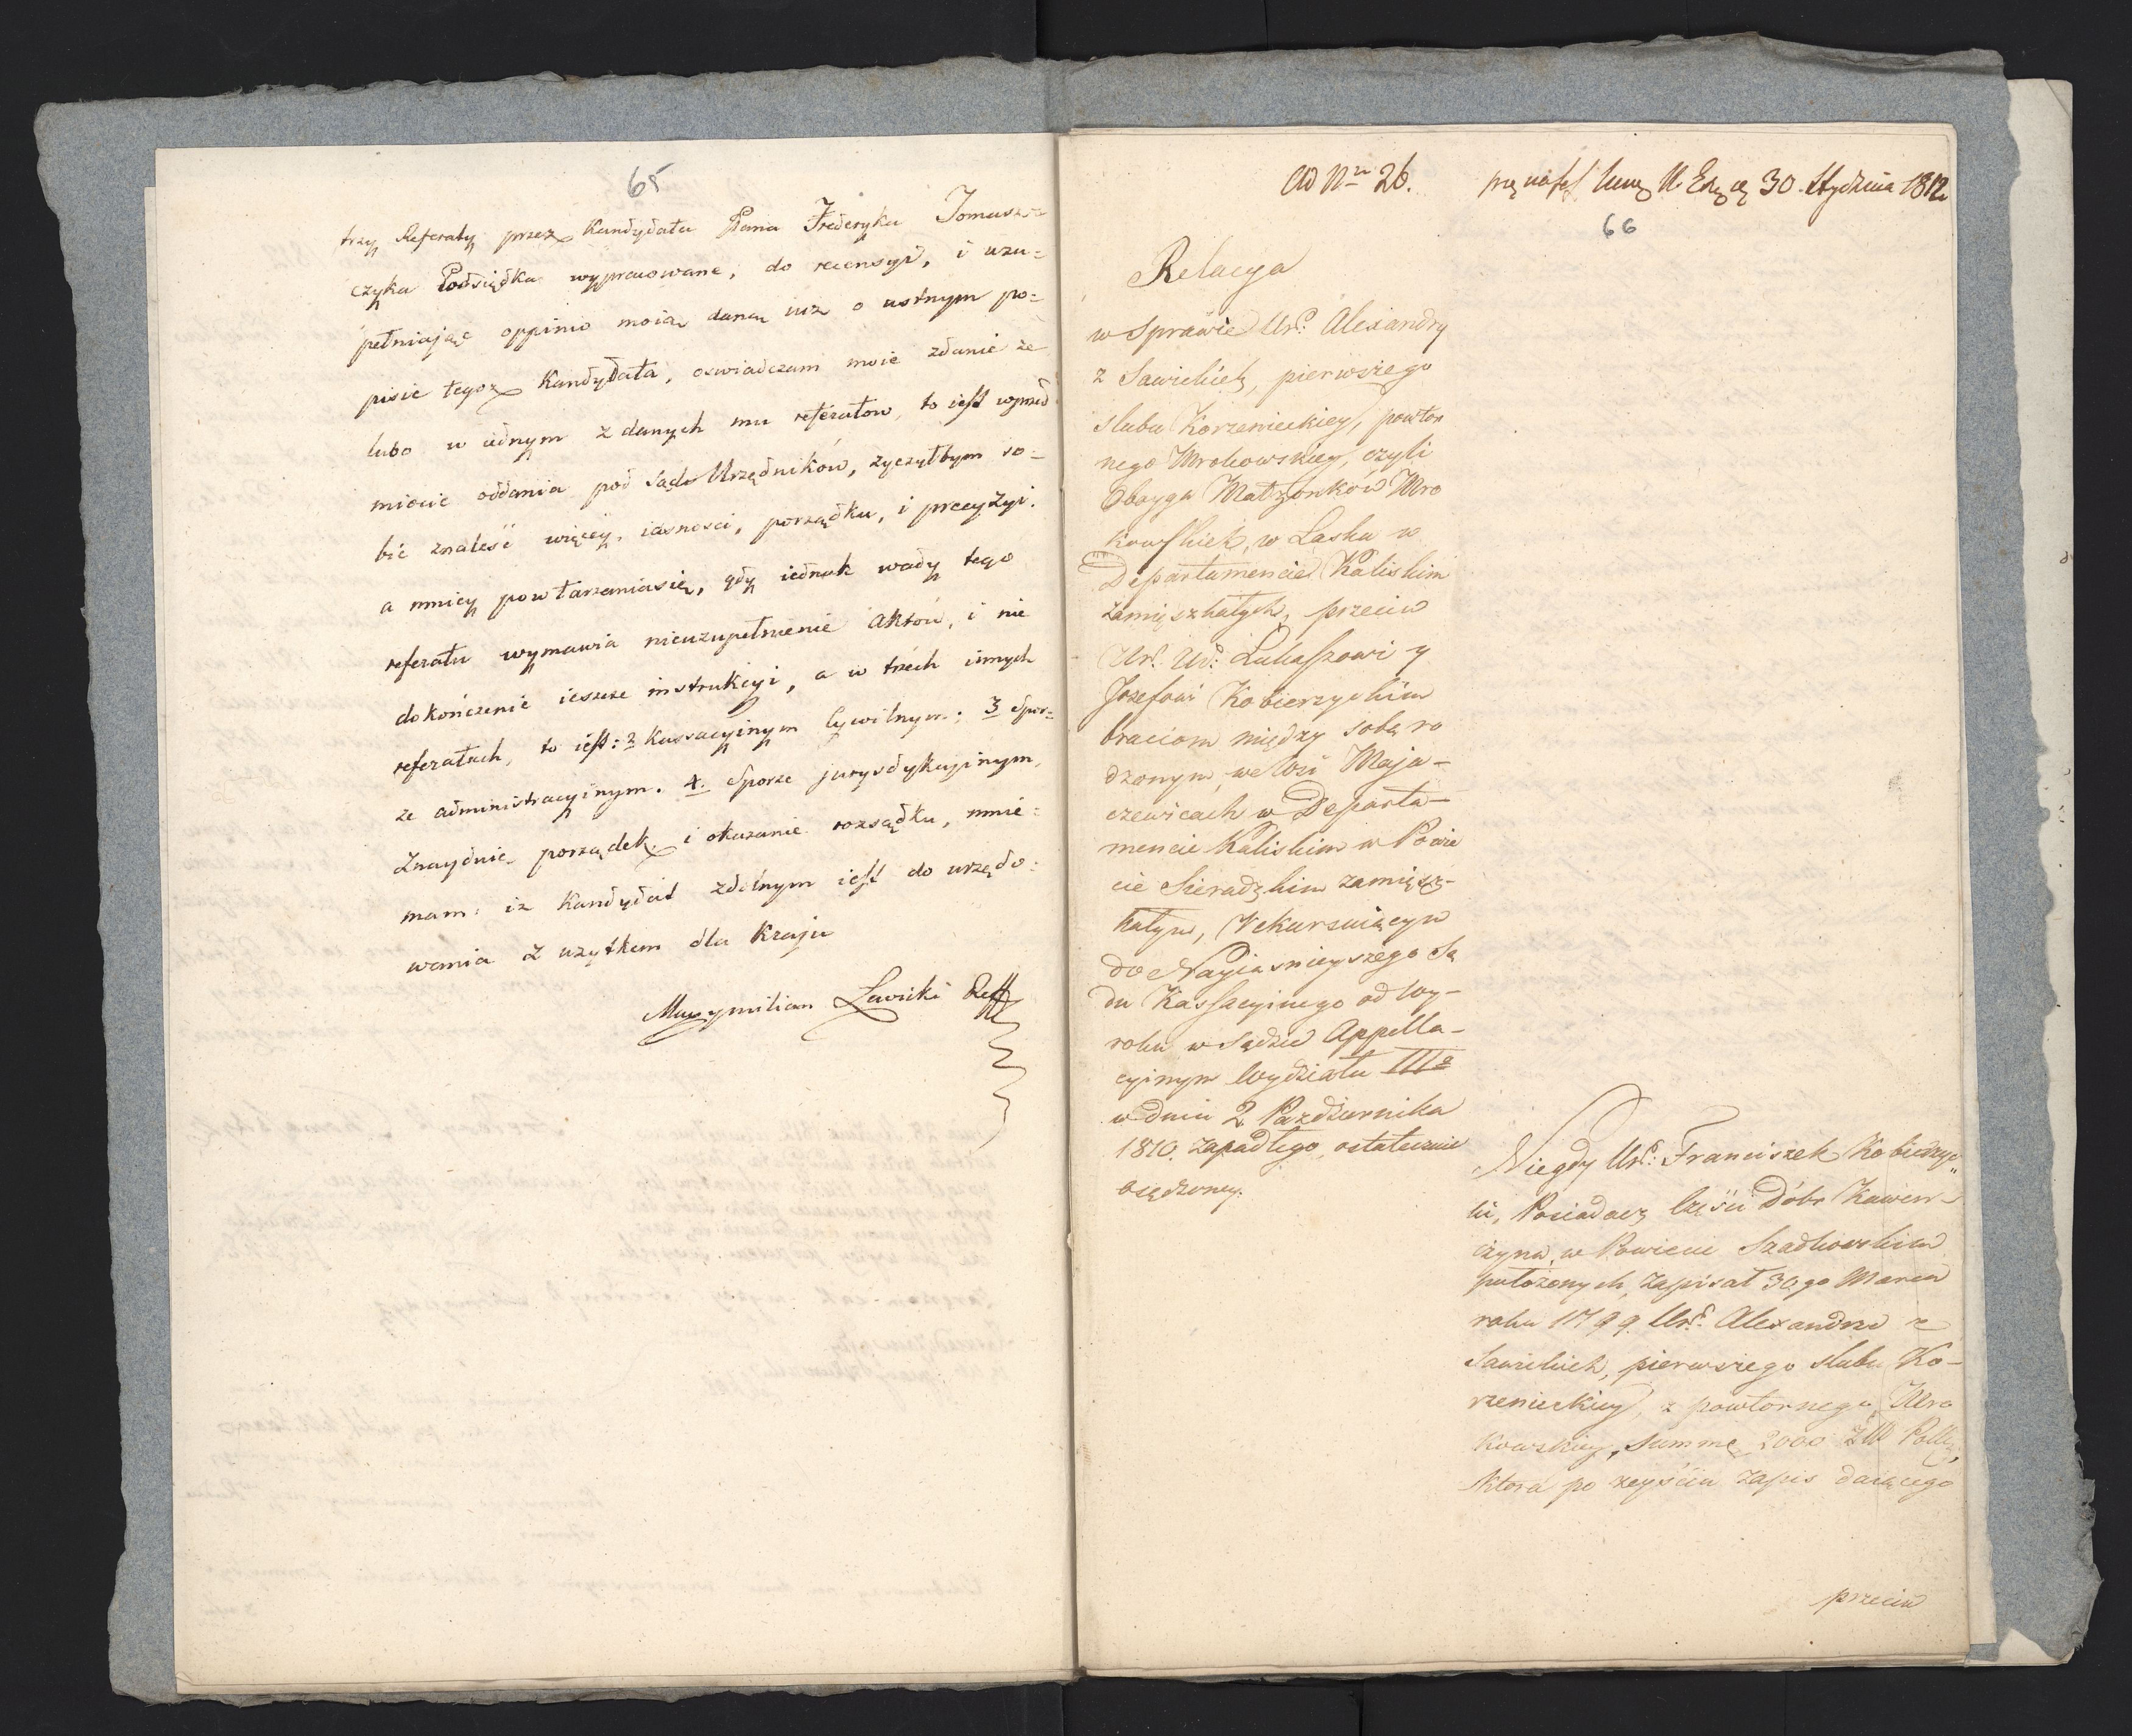 65
trzy Referaty przez Kandydata Pana Fryderyka Tomasz
czyka Podsiądka wypracowane, do recensyi, i uzu=
pełniaiąc oppinio moią daną iuz o ustnym po=
pisie tegoz Kandydata, oswiadczam moie zdanie że
lubo w iednym z danych mu referatow, to iest wzmed
miocie oddania pod Sąd Urzędników, zyczyłbym so=
bie znalesć więcey, iasnosci, porządku, i precyzyi.
a mniey powtarzaniasię, gdy iednak wady tego
referatu wymawia nieuzupełnienie aktów, i nie
dokończenie ieszcze instrukcyi, a w trzech innych
referatach, to iest: 2 Kassacyinym Cywilnym; 3 Spor=
ze administracyinym. 4. Sporze jurysdykcyinym,
Znayduię porządek, i okazanie rozsądku, mnie=
mam: iz Kandydat zdolnym iest do urzędo=
wania z uzytkem dla Kraju
Maxymilian Lewicki Reff
Ad Nr 26. 30. Stycznia 1812
66
Relacya
w Sprawie Ur: Alexandry
z Sawickich, pierwszego
slubu Korzenieckiey, powtor
nego Mrokowskiey, czyli
Oboyga Małżonków Mro
kowskich, w Lasku w
Departamencie Kaliskim
zamięszkałych, przeciw
Ur: Ur: Lukaszowi y
Jozefowi Kobierzyckim
braciom między sobą ro
dzonym, we Wsi Maja-
czewicach w Departa-
mencie Kaliskim w Powie
cie Sieradzkim zamięsz-
kałym, Rekursuiącym
do Nayiasnieyszego Są
du Kassacyinego od Wy-
roku w Sądzie Appella-
cyinym Wydziału III-o
w dniu 2 Pazdziernika
1810. zapadłego, ostatecznie
osądzoney.
Niegdy Ur: Franciszek Kobierzyc
ki, Posiadacz Części Dóbr Kawen-
czyna, w Powiecie Szadkowskim
położonych, zapisał 30go Marca
roku 1799. Ur: Alexandrze z
Sawickich, pierwszego slubu Ko-
rzenieckiey, z powtornego Mro
kowskiey, Summę 2000 Złł Poll:,
ktora po zeyściu zapis daiącego
przeciw